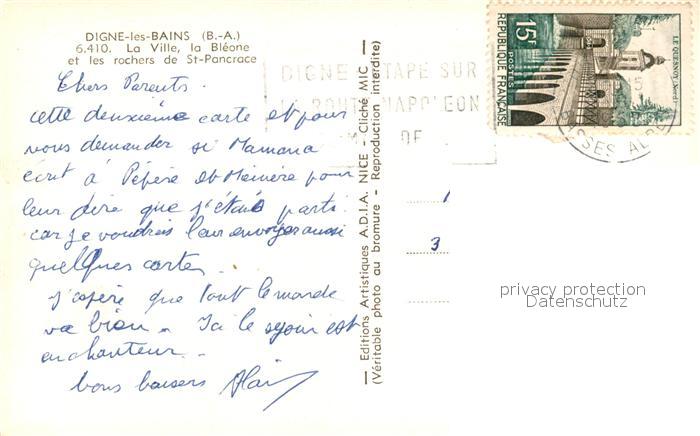 DIGNE-les-BAINS (B.-A.)
6.410. La Ville, la Bléone
et les rochers de St-Pancrace
Chers Parents.
cette deuxième carte est pour
vous demander si Mamana
écrit à Pépère et Mémère pour
leur dire que j'étais parti.
car je voudrais leur envoyer aussi
quelques cartes.
j'espère que tout le monde
va bien. Ici le séjour est
enchanteur.
bons baisers Alain
— Editions Artistiques A.D.I.A. NICE - Cliché MIC —
(Véritable photo au bromure - Reproduction interdite)
DIGNE ETAPE SUR
LA ROUTE NAPOLEON
DE
15F
POSTES
REPUBLIQUE FRANÇAISE
LE QUESNOY (Nord)
15
BASSES ALPES
1
3
privacy protection
Datenschutz